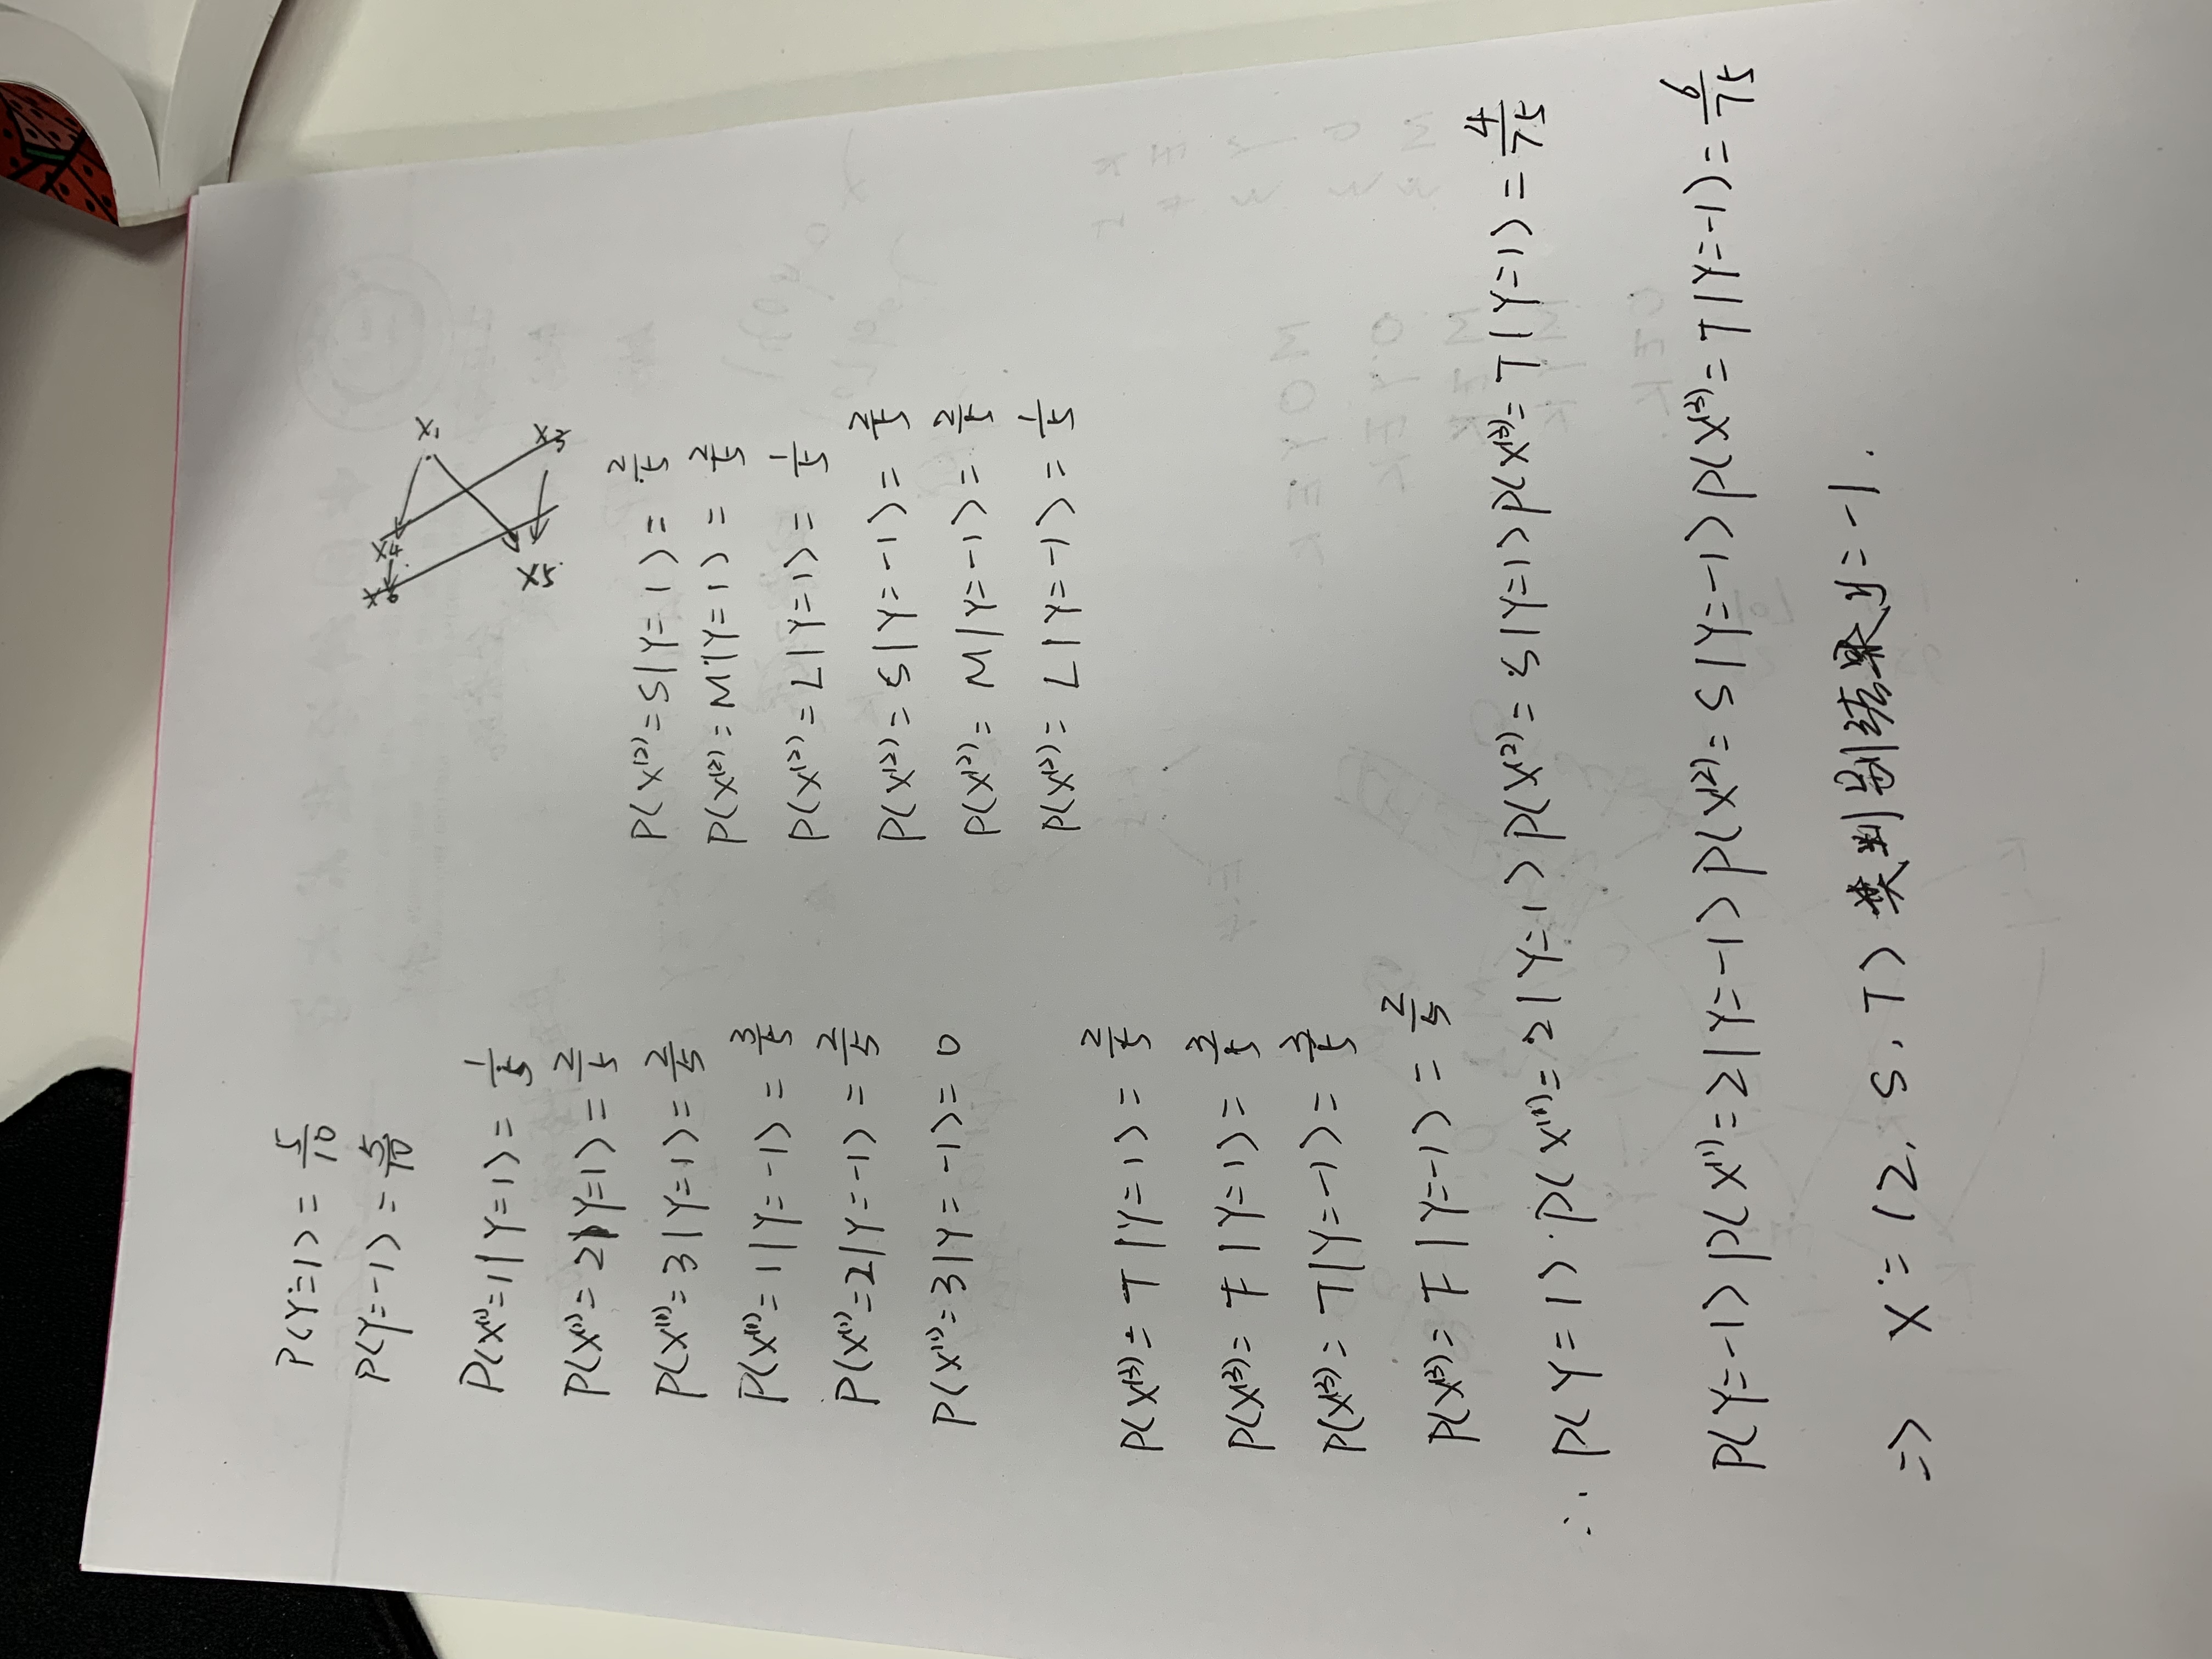 P(Y=1) = 5/10
P(Y=-1) = 5/10
P(X⁽¹⁾=1|Y=1) = 1/5
P(X⁽¹⁾=2|Y=1) = 2/5
P(X⁽¹⁾=3|Y=1) = 2/5
P(X⁽¹⁾=1|Y=-1) = 3/5
P(X⁽¹⁾=2|Y=-1) = 2/5
P(X⁽¹⁾=3|Y=-1) = 0
P(X⁽²⁾=S|Y=1) = 2/5
P(X⁽²⁾=M|Y=1) = 2/5
P(X⁽²⁾=L|Y=1) = 1/5
P(X⁽²⁾=S|Y=-1) = 2/5
P(X⁽²⁾=M|Y=-1) = 2/5
P(X⁽²⁾=L|Y=-1) = 1/5
P(X⁽³⁾=T|Y=1) = 2/5
P(X⁽³⁾=F|Y=1) = 3/5
P(X⁽³⁾=T|Y=-1) = 3/5
P(X⁽³⁾=F|Y=-1) = 2/5
∴ P(Y=1)·P(X⁽¹⁾=2|Y=1)P(X⁽²⁾=S|Y=1)P(X⁽³⁾=T|Y=1) = 4/75
P(Y=-1)P(X⁽¹⁾=2|Y=-1)P(X⁽²⁾=S|Y=-1)P(X⁽³⁾=T|Y=-1) = 6/75
=> X=(2, S, T) 类判别结果y=-1.